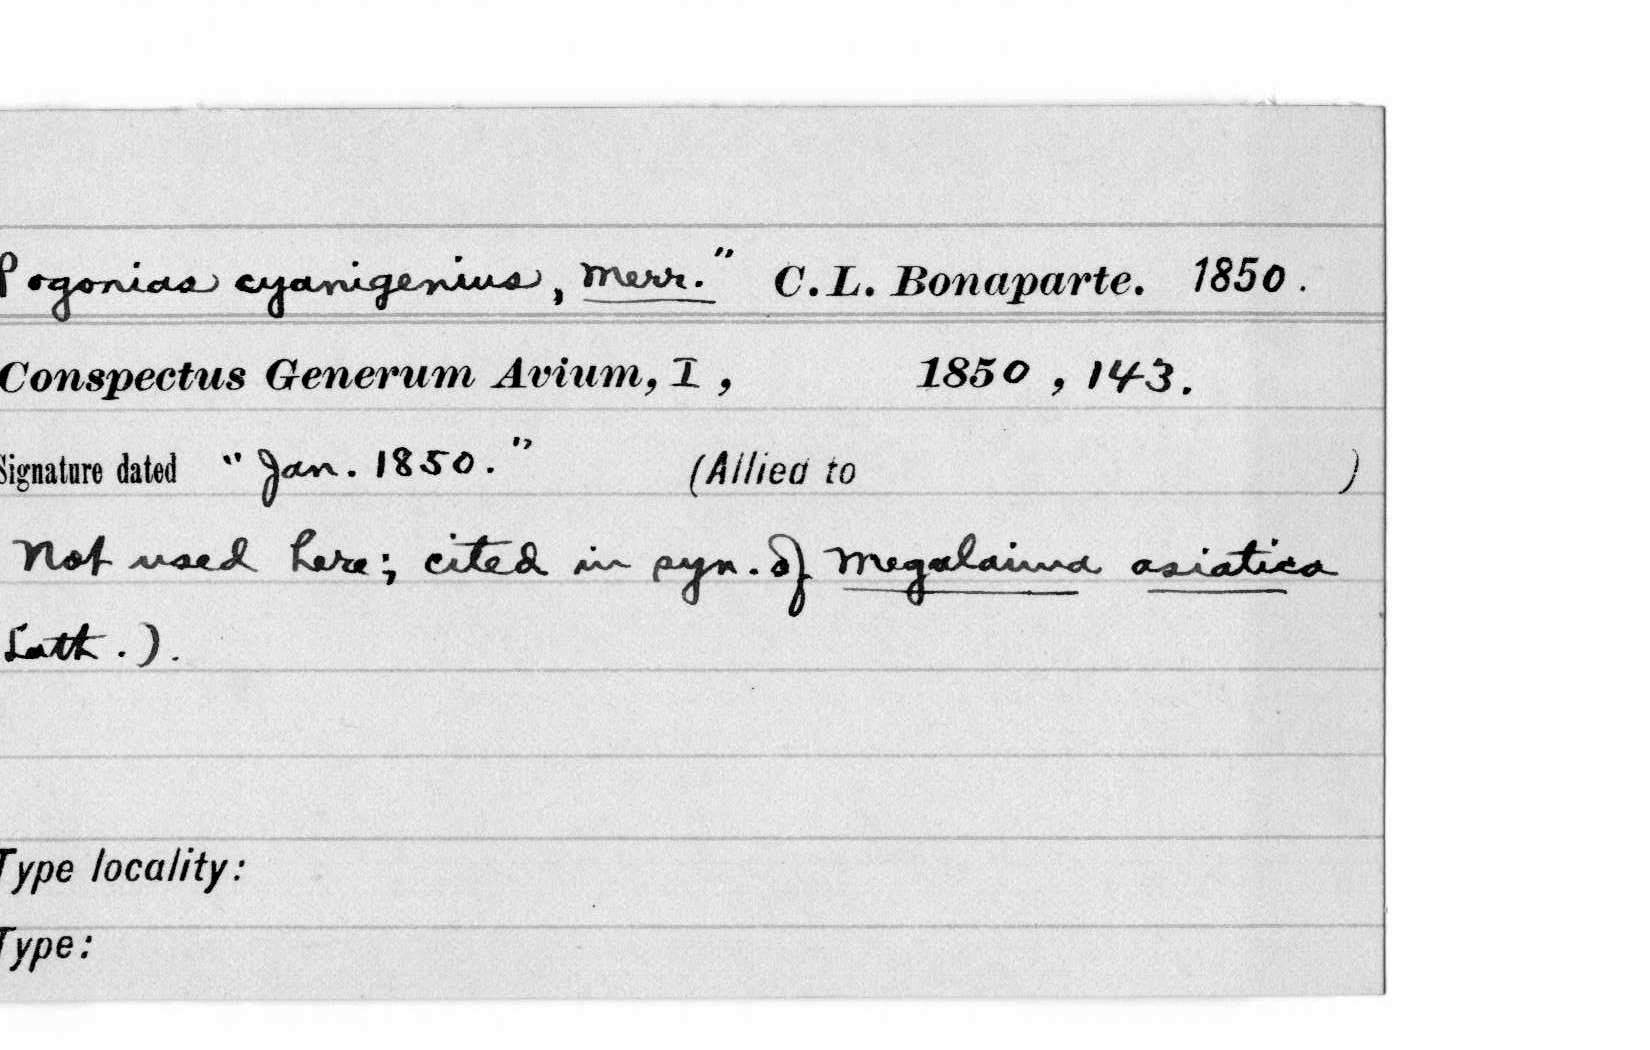 Pogonias cyanigenius, Merr." C.L. Bonaparte. 1850.
Conspectus Generum Avium, I, 1850, 143.
Signature dated "Jan. 1850." (Allied to )
Not used here; cited in syn. of Megalaima asiatica
Lath.).
Type locality:
Type: